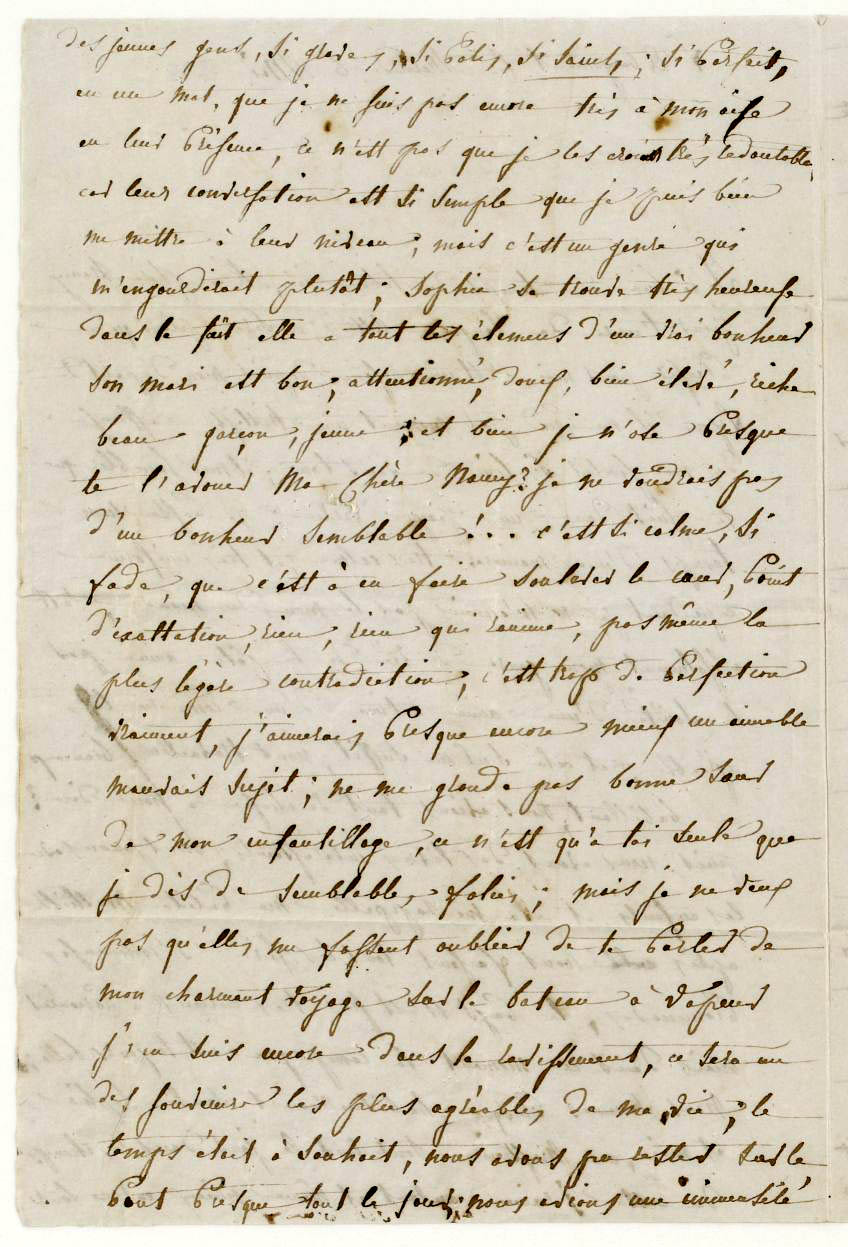 des jeunes gens, si graves, si polis, si saints; si Parfait,
en un mot, que je ne suis pas encore très à mon aise
en leur Présence, ce n'est pas que je les très redoutable,
car leur conversation est si simple que je puis bien
me mettre à leur niveau; mais c'est un genre qui
m'engourdirait plutôt; Sophie se trouve très heureuse
dans le fait elle a tout les élemens d'un vrai bonheur
son mari est bon, attentionné, doux, bien élevé, riche
beau garçon, jeune; et bien je n'ose Presque
te l'avouer Ma Chère Nancy? je ne voudrais pas
d'un bonheur semblable!.. c'est si calme, si
fade, que c'est à en faire soulever le cœur, Point
d'exaltation, rien, rien qui ranime, pas même la
plus légère contradiction, c'est trop de Perfection
vraiment, j'aimerais Presque encore mieux un aimable
mauvais sujet; ne me gronde pas bonne sœur
de mon enfantillage, ce n'est qu'à toi seule que
je dis de semblables folies; mais je ne veux
pas qu'elles me fassent oublier de te Parler de
mon charmant voyage sur le bateau à vapeur
j'en suis encore dans le ravissement, ce sera un
des souvenirs les plus agréables de ma vie; le
temps était à souhait, nous avons pu rester sur le
Pont Presque tout le jour; nous avions une immensité